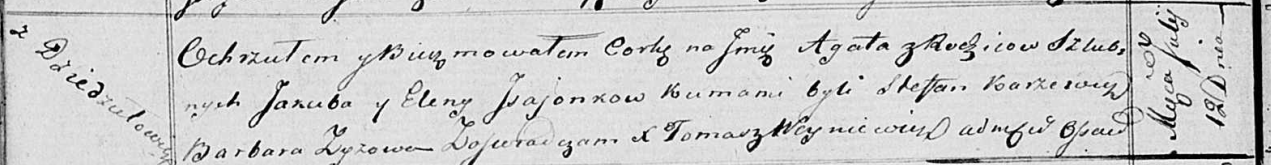 z Dziedziułowicz
Ochrzułem y Birzmowałem Corkę na Jmię Agata z Rodzicow Szlub=
nych Jakuba y Eleny Isajonkow Kumami byli Stefan Karzewicz
Barbara Zyzowa Doswradczam X Tomasz Woyniewicz
Mҫa July
12 Dnia